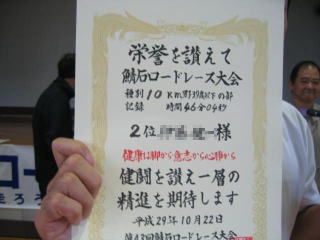 栄誉を讃えて
鯖石ロードレース大会
種別 10km男39歳以下の部
記録 時間46分04秒
2位 様
健康は脚から意志から心肺から
健闘を讃え一層の
精進を期待します
平成29年10月22日
第43回鯖石ロードレース大会